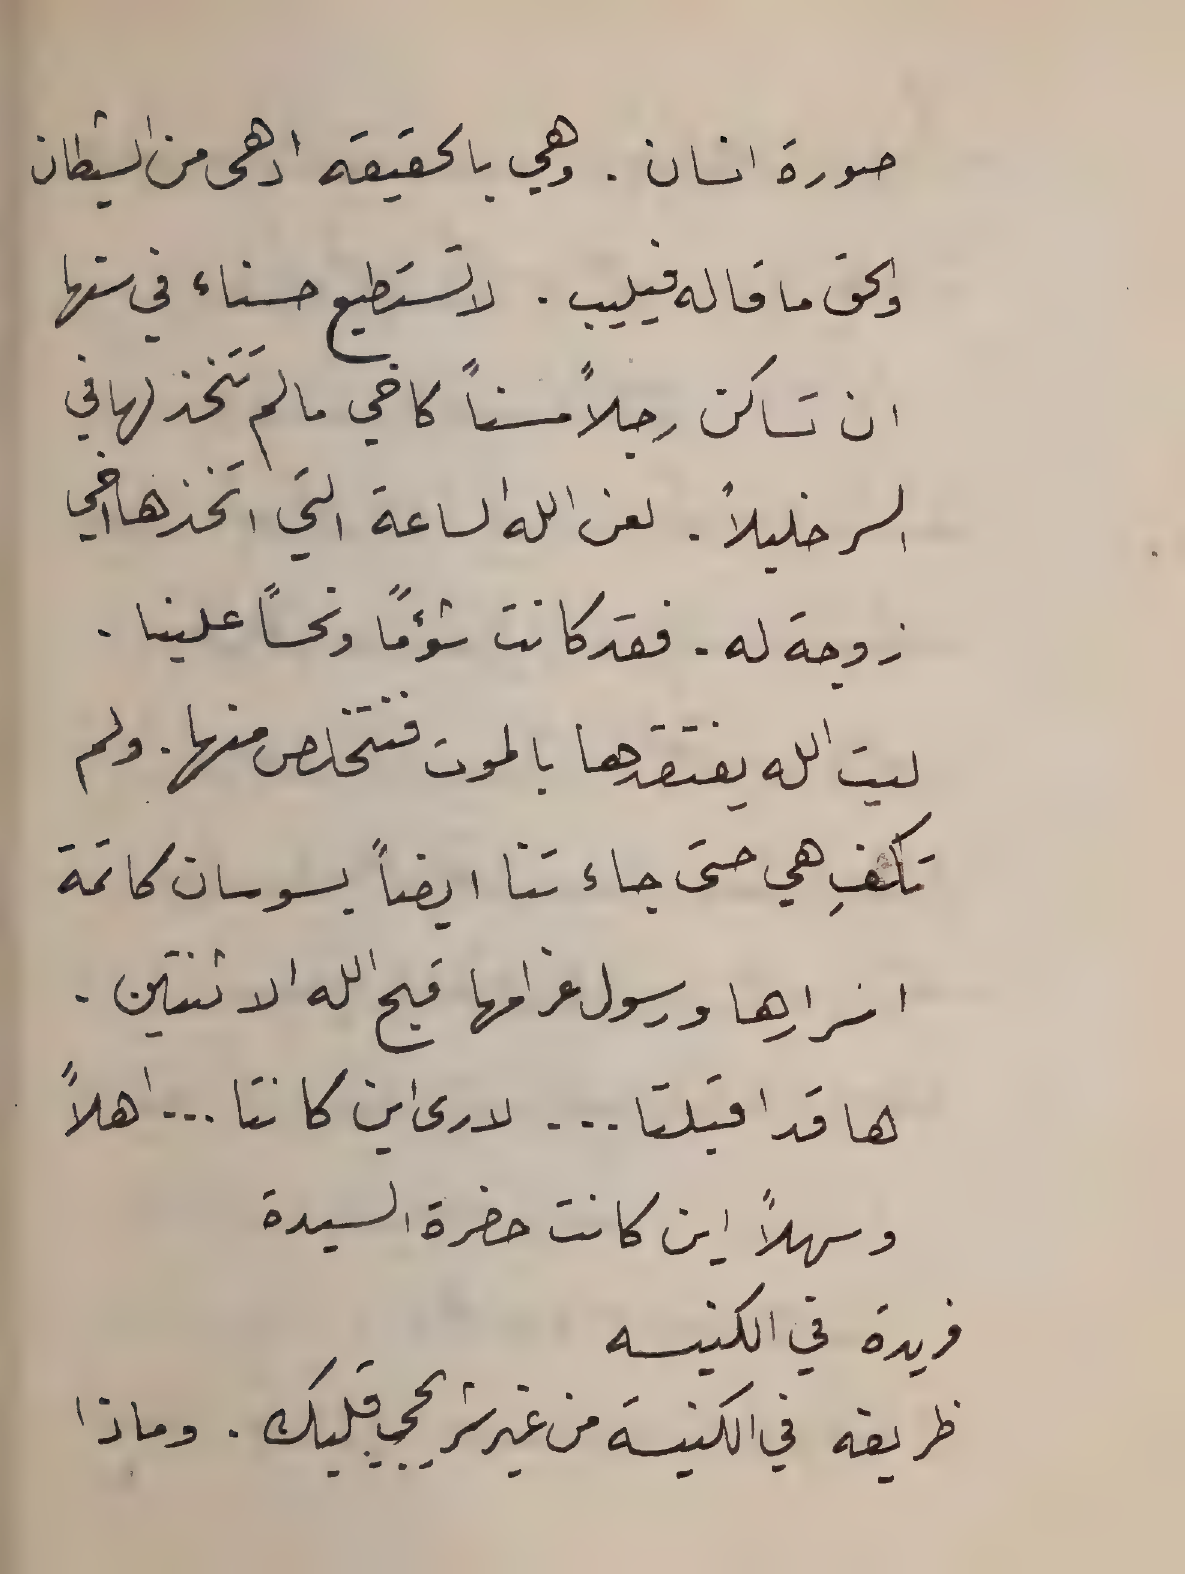 صورة انسان . وهي بالحقيقه ادهى من الشيطان
والحق ما قاله فيليب . لا تستطيع حسناء في سنها
ان تساكن رجلاً مسناً كاخي ما لم تتخذ لها في
السر خليلاً . لعن الله الساعة التي اتخذها اخي
زوجة له . فقد كانت شؤماً ونحساً علينا .
ليت الله يفتقدها بالموت فنتخلص منها . ولم
تكتفِ هي حتى جاءتنا ايضاً بسوسان كاتمة
اسرارها ورسول غرامها قبح الله الاثنتين .
ها قد اقبلتا ... لارى اين كانتا ... اهلاً
وسهلاً اين كانت حضرة السيدة
فريدة في الكنيسه
ظريفه في الكنيسة من غير شر يحجي قلبك . وماذا